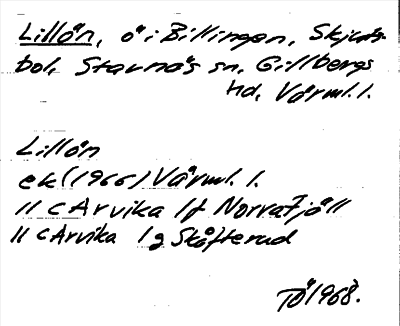 Lillön, ö i Billingen, Skjuts-
bol, Stavnäs sn, Gillbergs
hd, Värml. l.
Lillön
ek (1966) Värml. l.
11 c Arvika 1f Norra Fjöll
11 c Arvika 1g Skåfterud
Tö 1968.